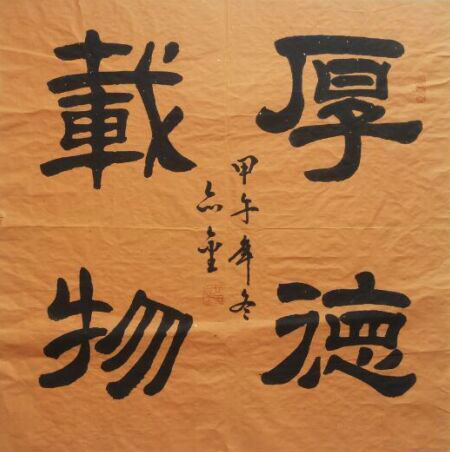 厚德
載物
甲午年冬